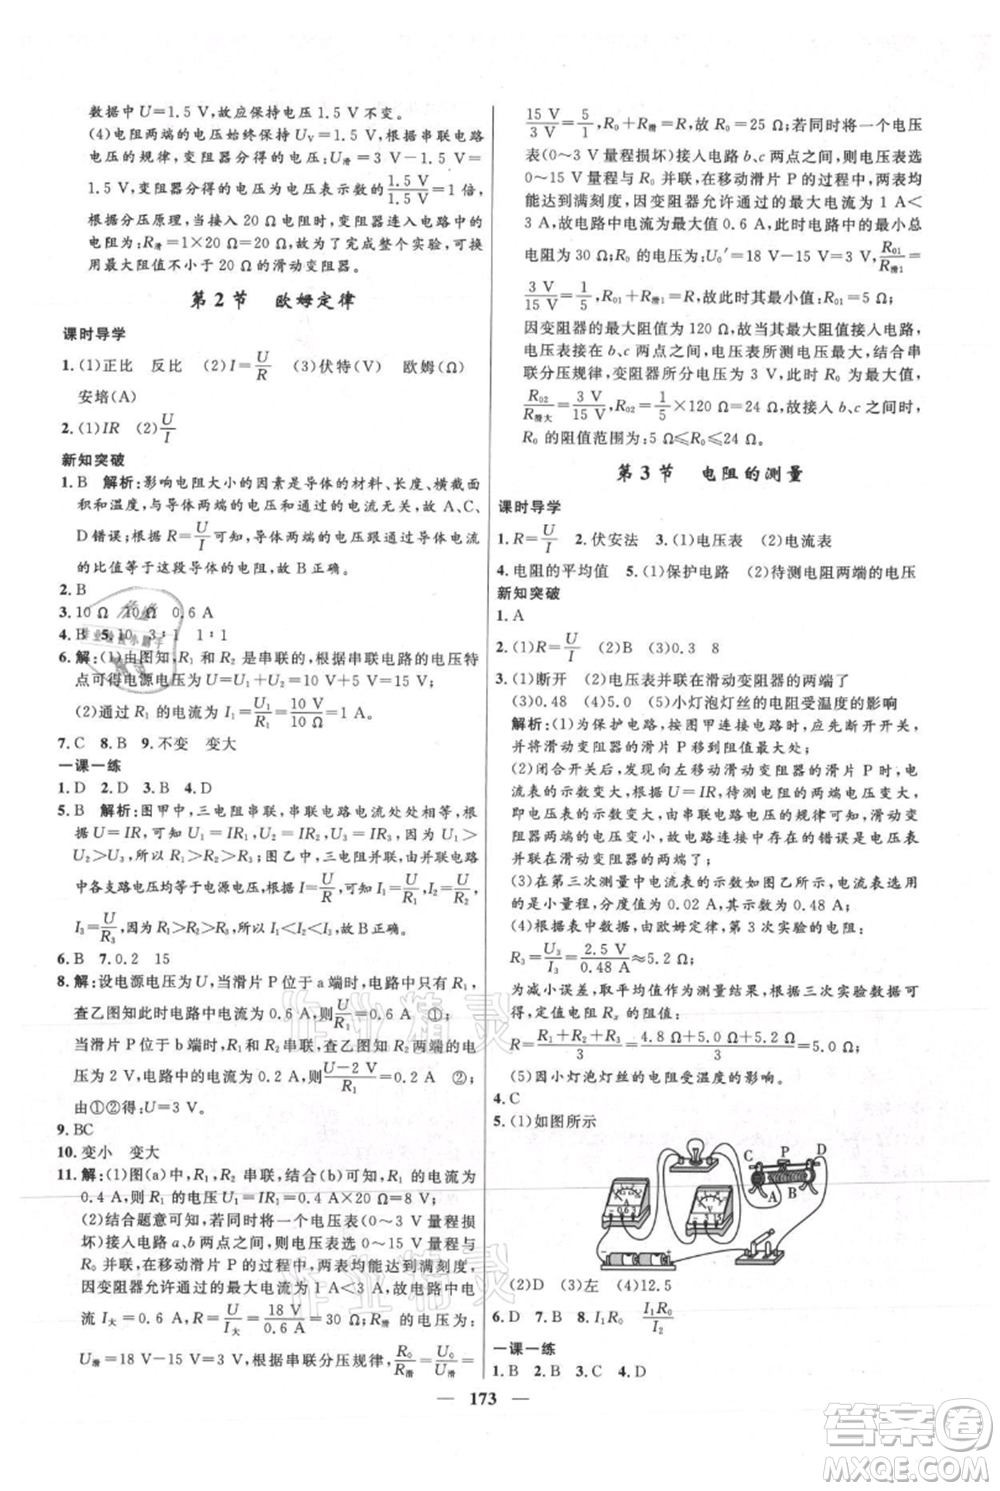 数据中U=1.5 V,故应保持电压1.5 V不变。
(4)电阻两端的电压始终保持UV=1.5 V,根据串联电路
的规律,变阻器分得的电压:U滑=3 V-1.5 V=
1.5 V,变阻器分得的电压为电压表示数的1.5 V/1.5 V=1倍,
根据分压原理,当接入20 Ω电阻时,变阻器连入电路中的
电阻为:R滑=1×20 Ω=20 Ω,故为了完成整个实验,可换
用最大阻值不小于20 Ω的滑动变阻器。
第2节 欧姆定律
课时导学
1.(1)正比 反比 (2)I=U/R (3)伏特(V) 欧姆(Ω)
安培(A)
2.(1)IR (2)U/I
新知突破
1.B 解析:影响电阻大小的因素是导体的材料、长度、横截面
积和温度,与导体两端的电压和通过的电流无关,故A、C、
D错误;根据R=U/I可知,导体两端的电压与导体中的电流
的比值等于这段导体的电阻,故B正确。
2.B
3.10 Ω 10 Ω 0.6 A
4.B 5.10 3∶1 1∶1
6.解:(1)由图知,R1和R2是串联的,根据串联电路的电压特
点可得电源电压为U=U1+U2=10 V+5 V=15 V;
(2)通过R1的电流为I1=U1/R1=10 V/10 Ω=1 A。
7.C 8.B 9.不变 变大
一课一练
1.D 2.D 3.B 4.D
5.B 解析:图甲中,三电阻串联,串联电路电流处处相等,
根据U=IR,可知U1=IR1,U2=IR2,U3=IR3,因为U1>
U2>U3,所以,R1>R2>R3;图乙中,三电阻并联,并联电路
中各支路电压均等于电源电压,根据I=U/R可知,I1=U/R1,I2=U/R2,
I3=U/R3,因为R1>R2>R3,故I1<I2<I3。
6.B 7.0.2 15
8.解:设电源电压为U,当滑片P位于a端时,电路中只有R1,
查乙图知此时电路中电流为0.6 A,则U/R1=0.6 A ①;
当滑片P位于b处时,R1和R2串联,查乙图R2两端的电压
为2 V,电路中的电流为0.2 A,则U-2 V/R1=0.2 A ②;
由①②得:U=3 V。
9.BC
10.变小 变大
11.解:(1)图(a)中,R1、R2串联,结合(b)可知,R1的电流为
0.4 A,R1的电压为:U1=IR1=0.4 A×20 Ω=8 V;
(2)结合题意可知,若同时将一个电压表(0~3 V量程损
坏)接入电路a、b两点之间,则电压表选0~15 V,R0与R1
并联,在移动滑片P的过程中,两表均能达到满刻度,
因变阻器允许通过的最大电流为1 A<3 A,故电路中电
流I大=0.6 A,R=U/I大=18 V/0.6 A=30 Ω;R滑的电压为:
U滑=18 V-15 V=3 V,根据串联分压规律,R0/R滑=
15 V/3 V=5/1,R0+R滑=R,故R0=25 Ω;若同时将一个电压
表(0~3 V量程损坏)接入电路b、c两点之间,则电压表选
0~15 V量程与R0并联,在移动滑片P的过程中,两表均
能达到满刻度,因变阻器允许通过的最大电流为1 A<
3 A,故电路中电流为最大值0.6 A时,电路中的最小总
电阻为30 Ω,R0的电压为:U0′=18 V-15 V=3 V,R01/R滑1=
3 V/15 V=1/5,R01+R滑1=R,故R0其最小值:R01=5 Ω;
因变阻器的最大阻值为120 Ω,故当其最大值接入电路,
b、c两点间电压最大,故电压表所测电压最大,结合串
联分压规律,变阻器所分电压为15 V,R0的电压为3 V,
R02/R滑大=3 V/15 V,R02=1/5×120 Ω=24 Ω;故接入b、c之间时,
R0的阻值范围为:5 Ω≤R0≤24 Ω。
第3节 电阻的测量
课时导学
1.R=U/I 2.伏安法 3.(1)电压表 (2)电流表
4.电阻的平均值 5.(1)保护电路 (2)待测电阻两端的电压
新知突破
1.A
2.(1)R=U/I (2)B (3)0.3 8
3.(1)断开 (2)电压表并联在滑动变阻器的两端了
(3)0.48 (4)5.0 (5)小灯泡灯丝的电阻受温度的影响
解析:(1)为保护电路,按图甲连接电路时,应先断开开关,
并将滑动变阻器的滑片P移到阻值最大处;
(2)闭合开关后,发现向左移动滑动变阻器的滑片P,电流
表的示数变大,根据U=IR,待测电阻的电压变大,
即电压表的示数变大,由串联电路电压的规律可知,滑动变
阻器两端的电压变小,故电路连接中存在的错误是电压表
并联在滑动变阻器的两端了;
(3)在第三次测量中电流表的示数如图乙所示,电流表选
的是小量程,分度值为0.02 A,其示数为0.48 A;
(4)根据表中数据,由欧姆定律,第3次实验的电阻:
R3=U3/I3=2.5 V/0.48 A≈5.2 Ω;
为减小误差,取平均值作为测量结果,根据表中实验数据可
得,定值电阻Rx的阻值:
R=R1+R2+R3/3=4.8 Ω+5.0 Ω+5.2 Ω/3=5.0 Ω;
(5)因小灯泡灯丝的电阻受温度的影响。
4.C
5.(1)如图所示
C P D
A B
A
-0.6 3
V
- 3 15
(2)D (3)左 (4)12.5
6.D 7.B 8.I1R0 I1R0/I2
一课一练
1.B 2.B 3.C 4.D
173
作业精灵
作业精灵
答案圈
MXQE.COM